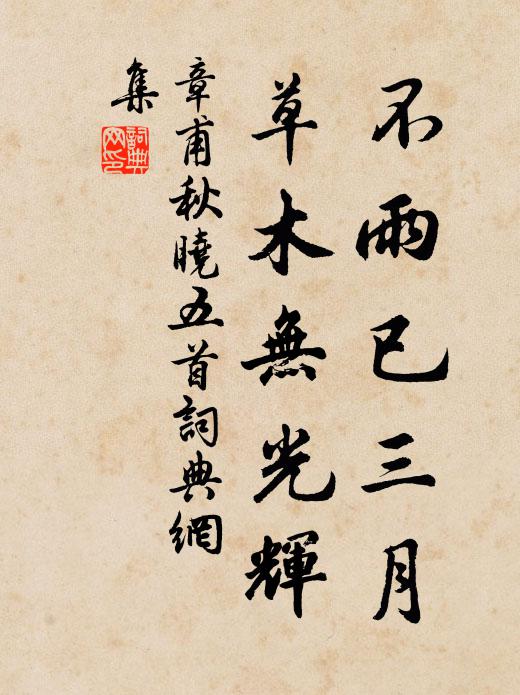 不雨已三月
草木無光輝
章甫秋曉五首詞典網
集
詞典网印